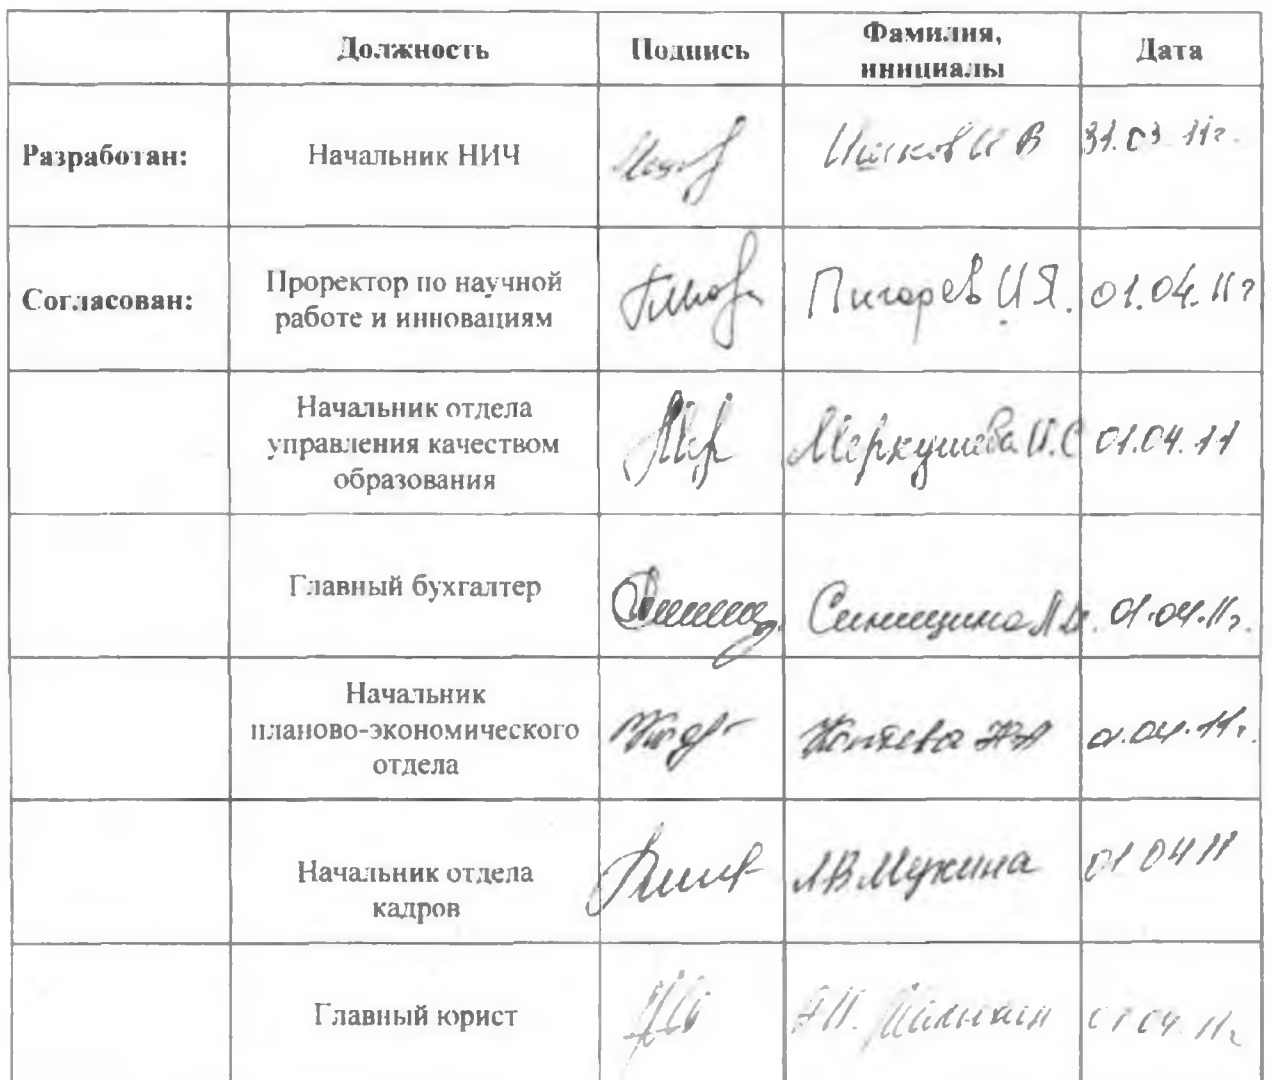 Должность Подпись Фамилия, инициалы Дата
Разработан: Начальник НИЧ И В 31.03 11г.
Согласован: Проректор по научной работе и инновациям Пигорев И.Я. 01.04.11г
Начальник отдела управления качеством образования Меркушева И.С 01.04.11
Главный бухгалтер 01.04.11г.
Начальник планово-экономического отдела 01.04.11г.
Начальник отдела кадров Л В Мухина 01 04 11
Главный юрист 01 04 11г